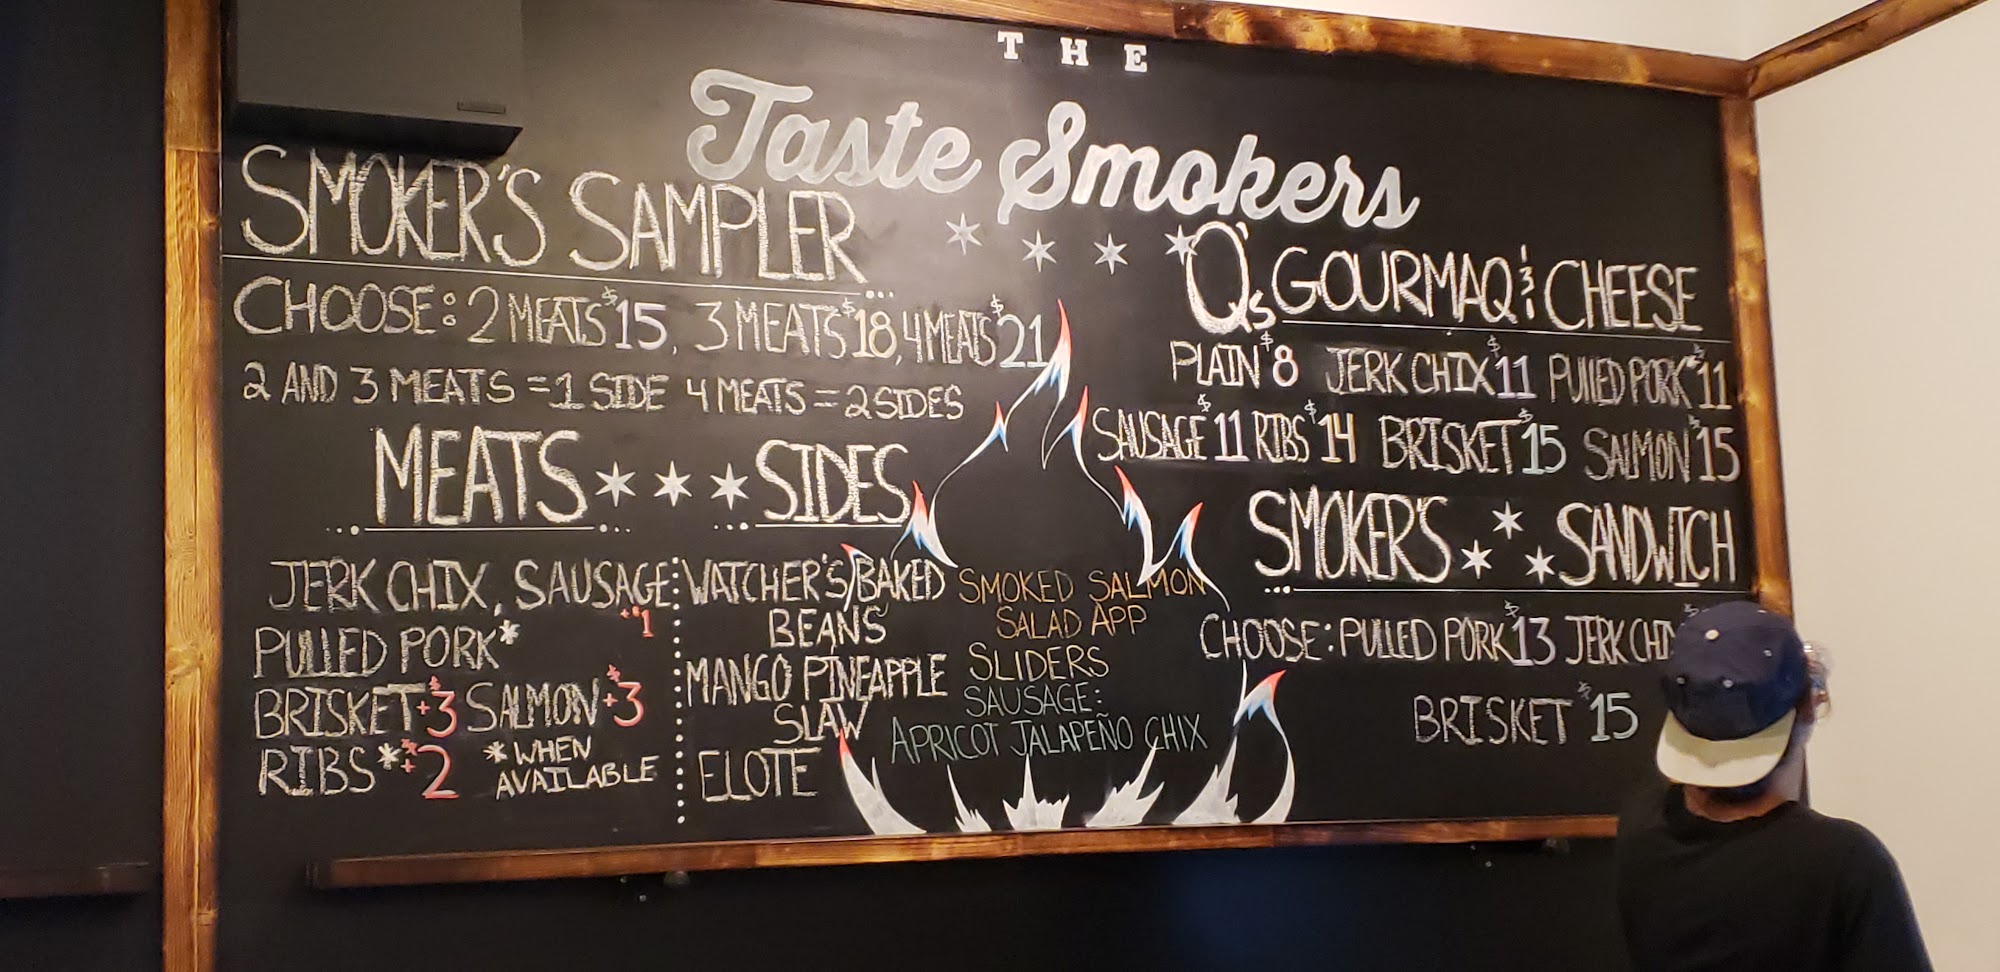 THE
Taste Smokers
SMOKER'S SAMPLER
CHOOSE: 2 MEATS $15, 3 MEATS $18, 4 MEATS $21
2 AND 3 MEATS = 1 SIDE 4 MEATS = 2 SIDES
MEATS
JERK CHIX, SAUSAGE +$1
PULLED PORK*
BRISKET +$3 SALMON +$3
RIBS* +$2 *WHEN
AVAILABLE
SIDES
WATCHER'S/BAKED
BEANS
MANGO PINEAPPLE
SLAW
ELOTE
SMOKED SALMON
SALAD APP
SLIDERS
SAUSAGE:
APRICOT JALAPEÑO CHIX
Q'S GOURMAQ & CHEESE
PLAIN $8 JERK CHIX $11 PULLED PORK* $11
SAUSAGE $11 RIBS $14 BRISKET $15 SALMON $15
SMOKER'S SANDWICH
CHOOSE: PULLED PORK $13 JERK
BRISKET $15